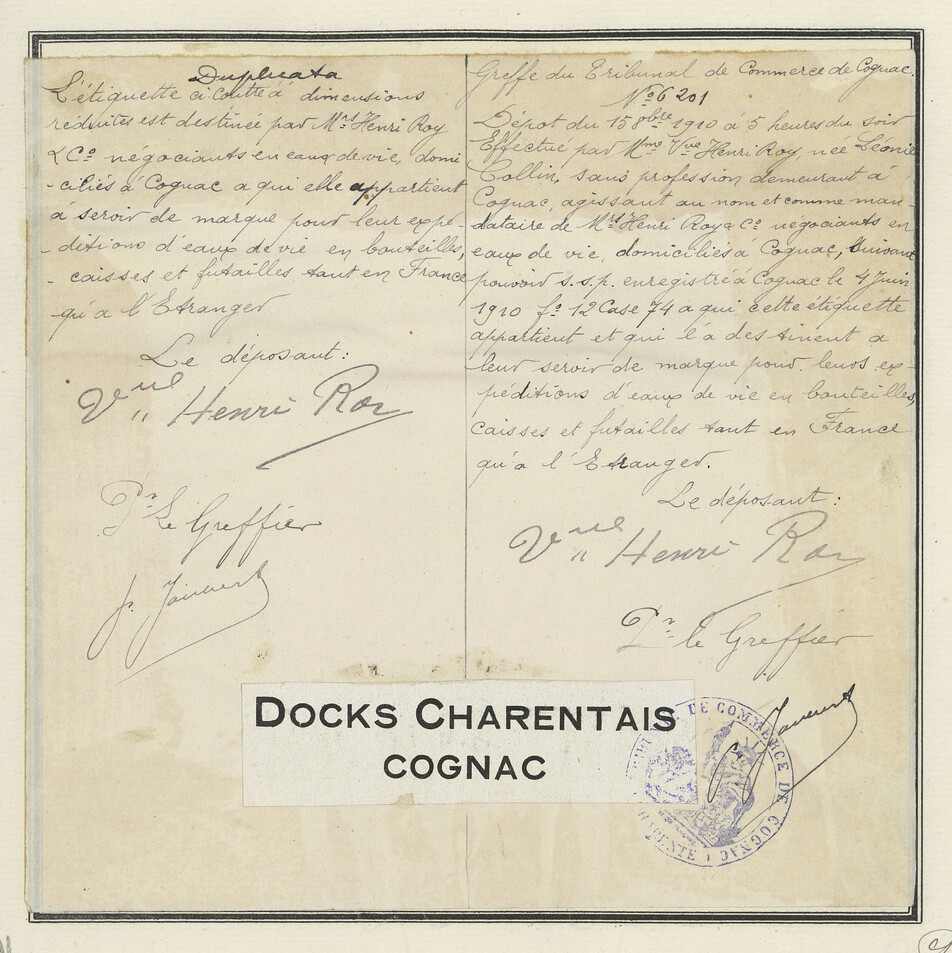 Duplicata
L'étiquette ci contre à dimensions
réduites est destinée par Mrs Henri Roy
& Co négociants en eaux de vie, domi
-ciliés à Cognac a qui elle appartient
à servir de marque pour leur expé
-ditions d'eaux de vie en bouteilles,
caisses et futailles tant en France
qu'a l'Etranger
Le déposant:
Vve Henri Roy
Pr Le Greffier
Greffe du Tribunal de Commerce de Cognac.
No 6201
Dépot du 15 8bre 1910 à 5 heures du soir
Effectué par Mme Vve Henri Roy, nee Léonie
Collin, sans profession demeurant à
Cognac, agissant au nom et comme man-
dataire de Mrs Henri Roy & Co négociants en
eaux de vie, domiciliés à Cognac, suivant
pouvoir s.s.p. enregistré à Cognac le 4 Juin
1910 fo 12 Case 74 a qui cette étiquette
appartient et qui l'a destinent a
leur servir de marque pour leurs ex-
péditions d'eaux de vie en bouteilles,
caisses et futailles tant en France
qu'a l'Etranger.
Le déposant:
Vve Henri Roy
Pr le Greffier
DOCKS CHARENTAIS
COGNAC
DE COMMERCE DE COGNAC